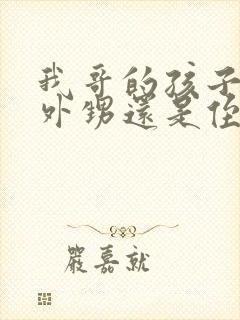 我哥的孩子
外甥還是侄
嚴嘉就